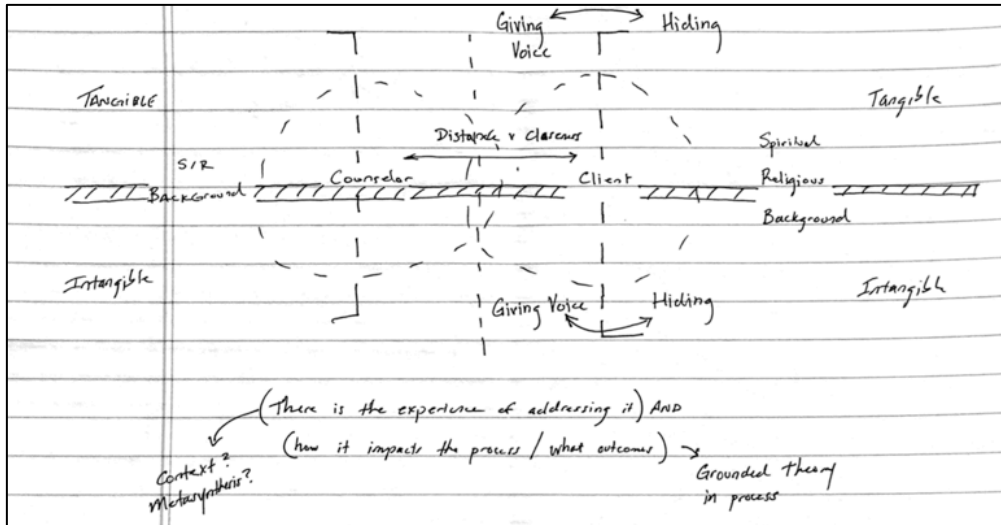 Giving Hiding
Voice
TANGIBLE Tangible
Distance v Closeness
Spiritual
S/R
Counselor Client Religious
BACKGROUND
Background
Intangible Intangible
Giving Voice Hiding
(There is the experience of addressing it) AND
(how it impacts the process / what outcomes)
Context?
Metasynthesis?
Grounded theory
in process